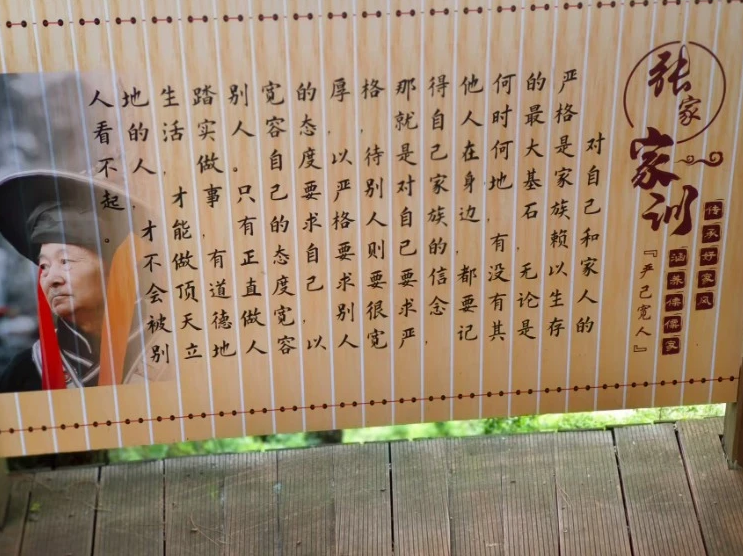 张家
家训
传承好家风
涵养儒家
『严己宽人』
对自己和家人的
严格是家族赖以生存
的最大基石，无论是
何时何地，有没有其
他人在身边，都要记
得自己家族的信念，
那就是对自己要求严
格，待别人则要很宽
厚，以严格要求别人
的态度要求自己，以
宽容自己的态度宽容
别人。只有正直做人
踏实做事，有道德地
生活，才能做顶天立
地的人，才不会被别
人看不起。